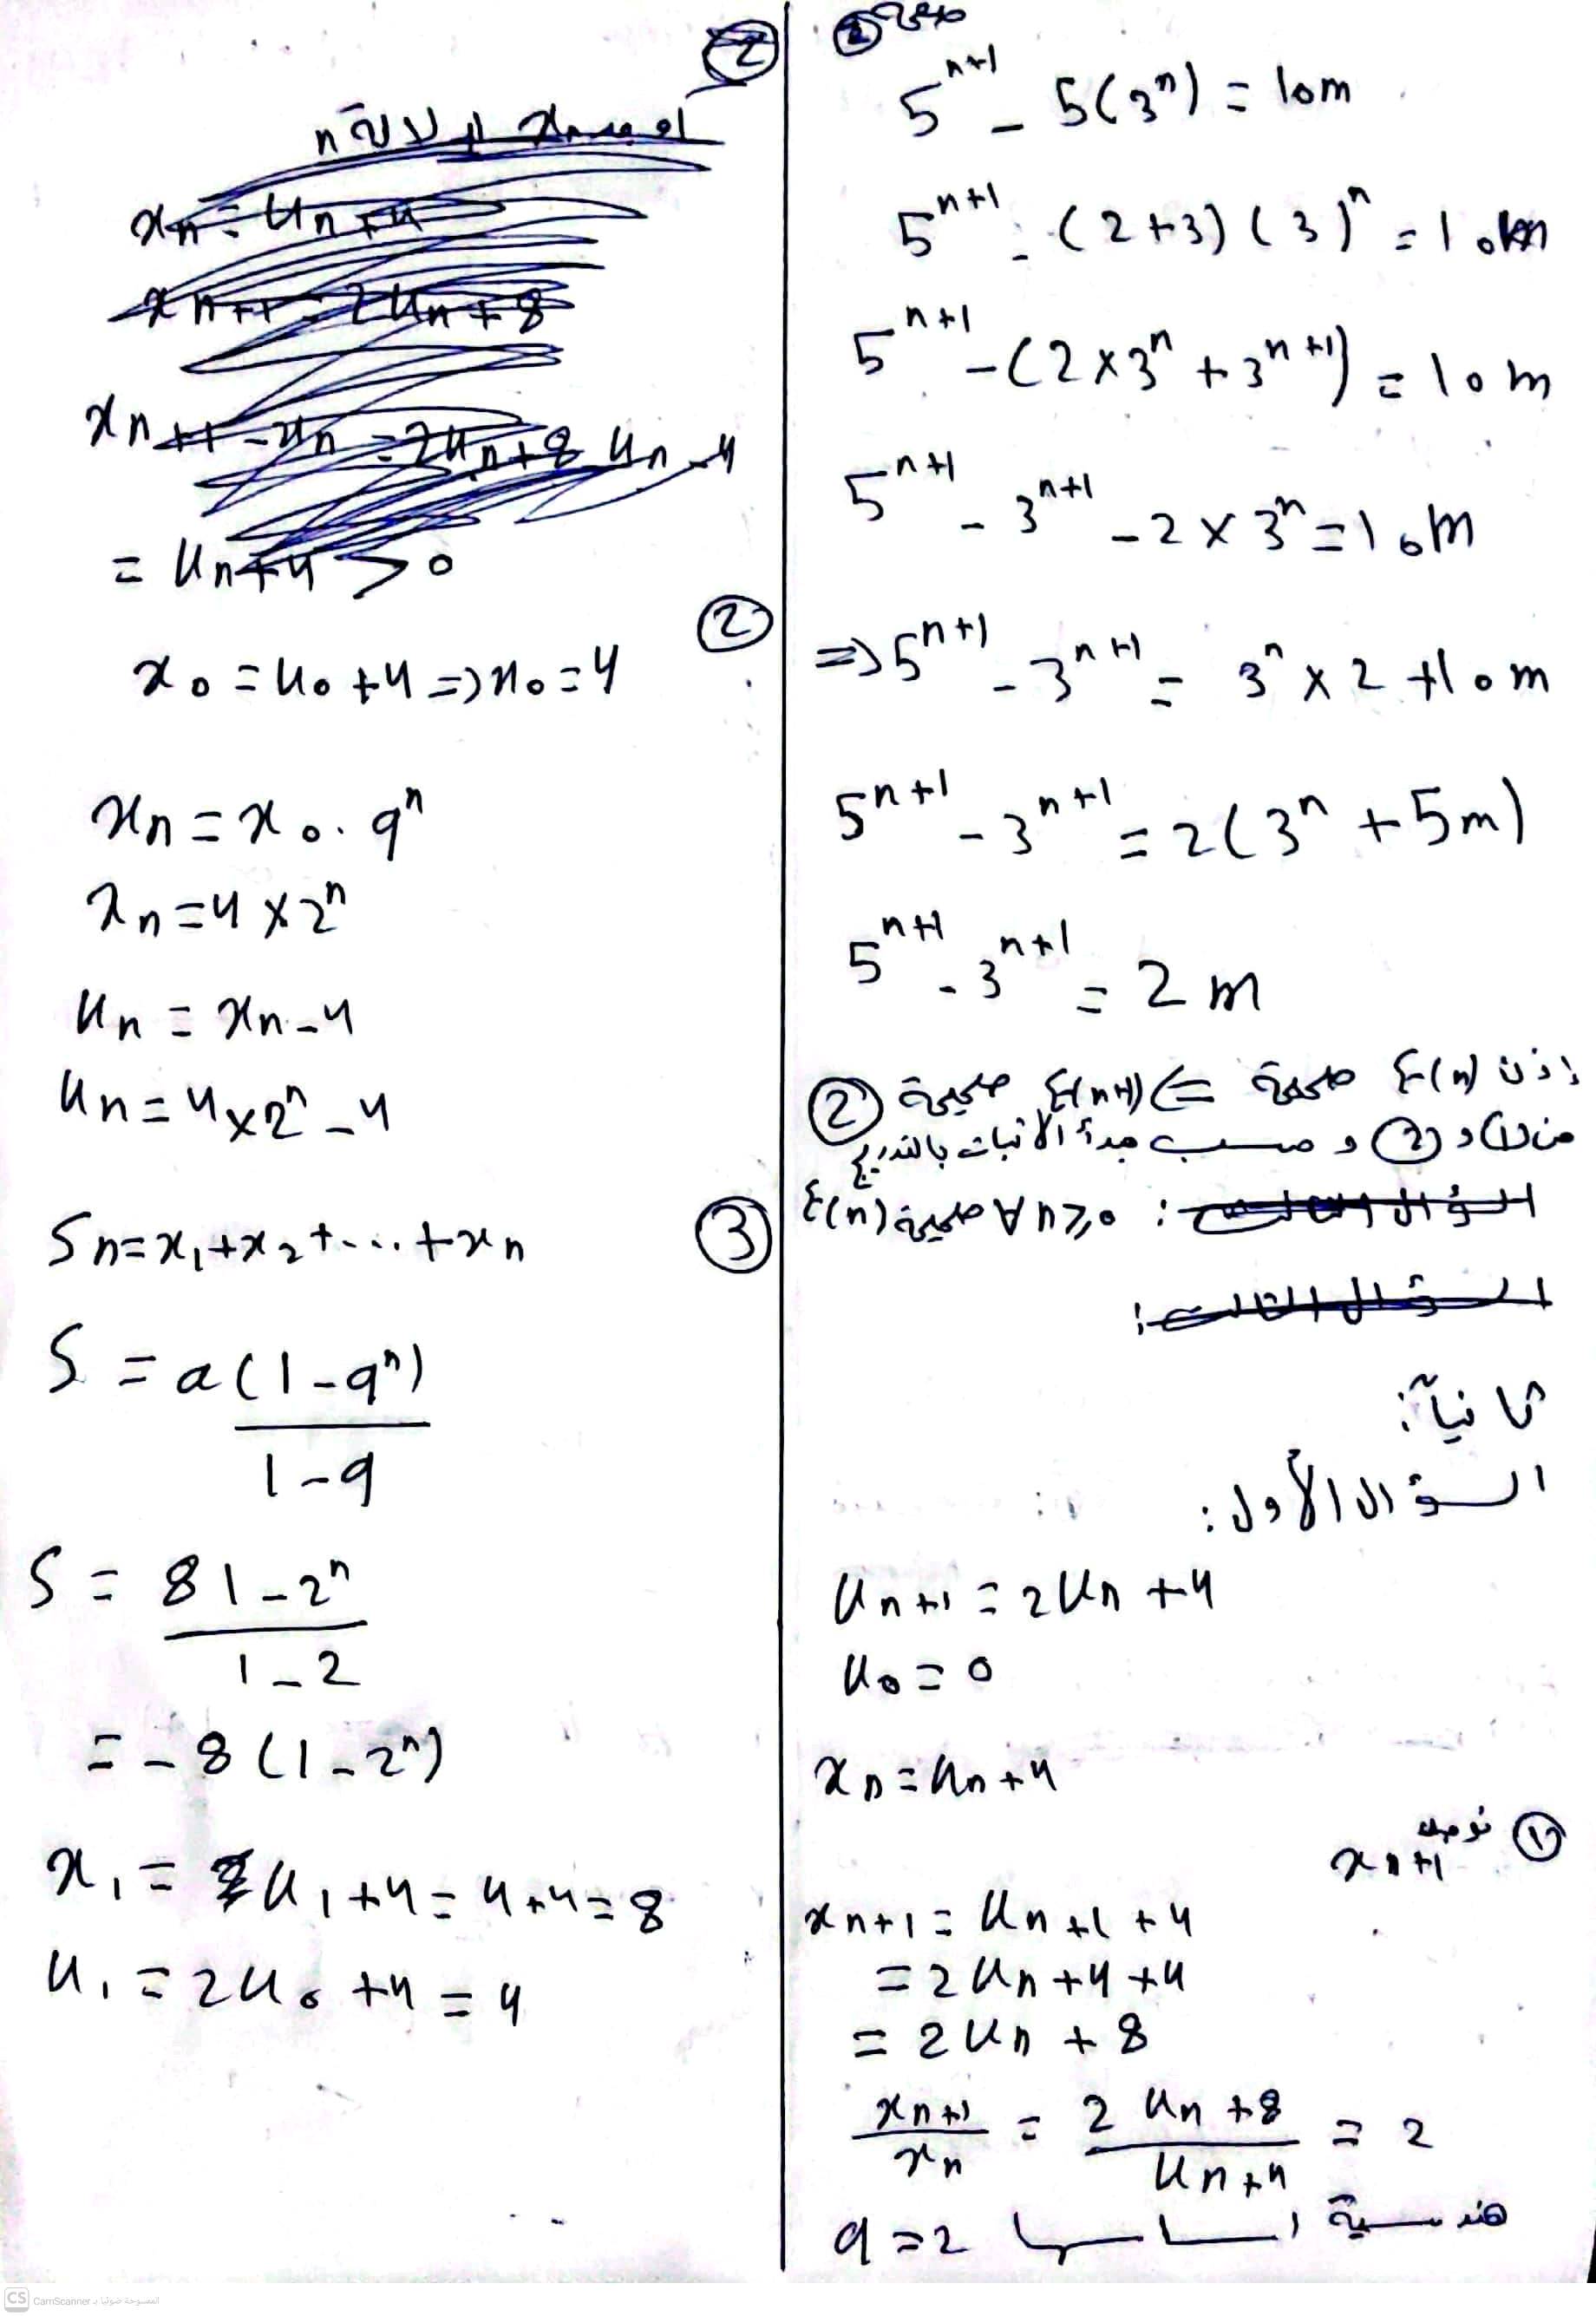 5^{n+1} - 5(3^n) = 10m
5^{n+1} - (2+3)(3)^n = 10m
5^{n+1} - (2×3^n + 3^{n+1}) = 10m
5^{n+1} - 3^{n+1} - 2×3^n = 10m
=> 5^{n+1} - 3^{n+1} = 3^n × 2 + 10m
5^{n+1} - 3^{n+1} = 2(3^n + 5m)
5^{n+1} - 3^{n+1} = 2m
إذن E(n) صحيحة => E(n+1) صحيحة ②
من ① و ② و حسب مبدأ الاثبات بالتدريج
E(n) صحيحة ∀ n ≥ 0 :
السؤال الثالث:
ثانياً:
السؤال الأول:
u_{n+1} = 2u_n + 4
u_0 = 0
x_n = u_n + 4
① نوجد x_{n+1}
x_{n+1} = u_{n+1} + 4
= 2u_n + 4 + 4
= 2u_n + 8
x_{n+1} / x_n = 2u_n + 8 / u_n + 4 = 2
هندسية اساسها q = 2
②
x_n = u_n + 4
x_{n+1} = 2u_n + 8
x_{n+1} - x_n = 2u_n + 8 - u_n - 4
= u_n + 4 > 0
②
x_0 = u_0 + 4 => x_0 = 4
x_n = x_0 . q^n
x_n = 4 × 2^n
u_n = x_n - 4
u_n = 4 × 2^n - 4
③ S_n = x_1 + x_2 + ... + x_n
S = a(1 - q^n) / 1 - q
S = 8 1 - 2^n / 1 - 2
= -8(1 - 2^n)
x_1 = u_1 + 4 = 4 + 4 = 8
u_1 = 2u_0 + 4 = 4
CS CamScanner الممسوحة ضوئيا بـ